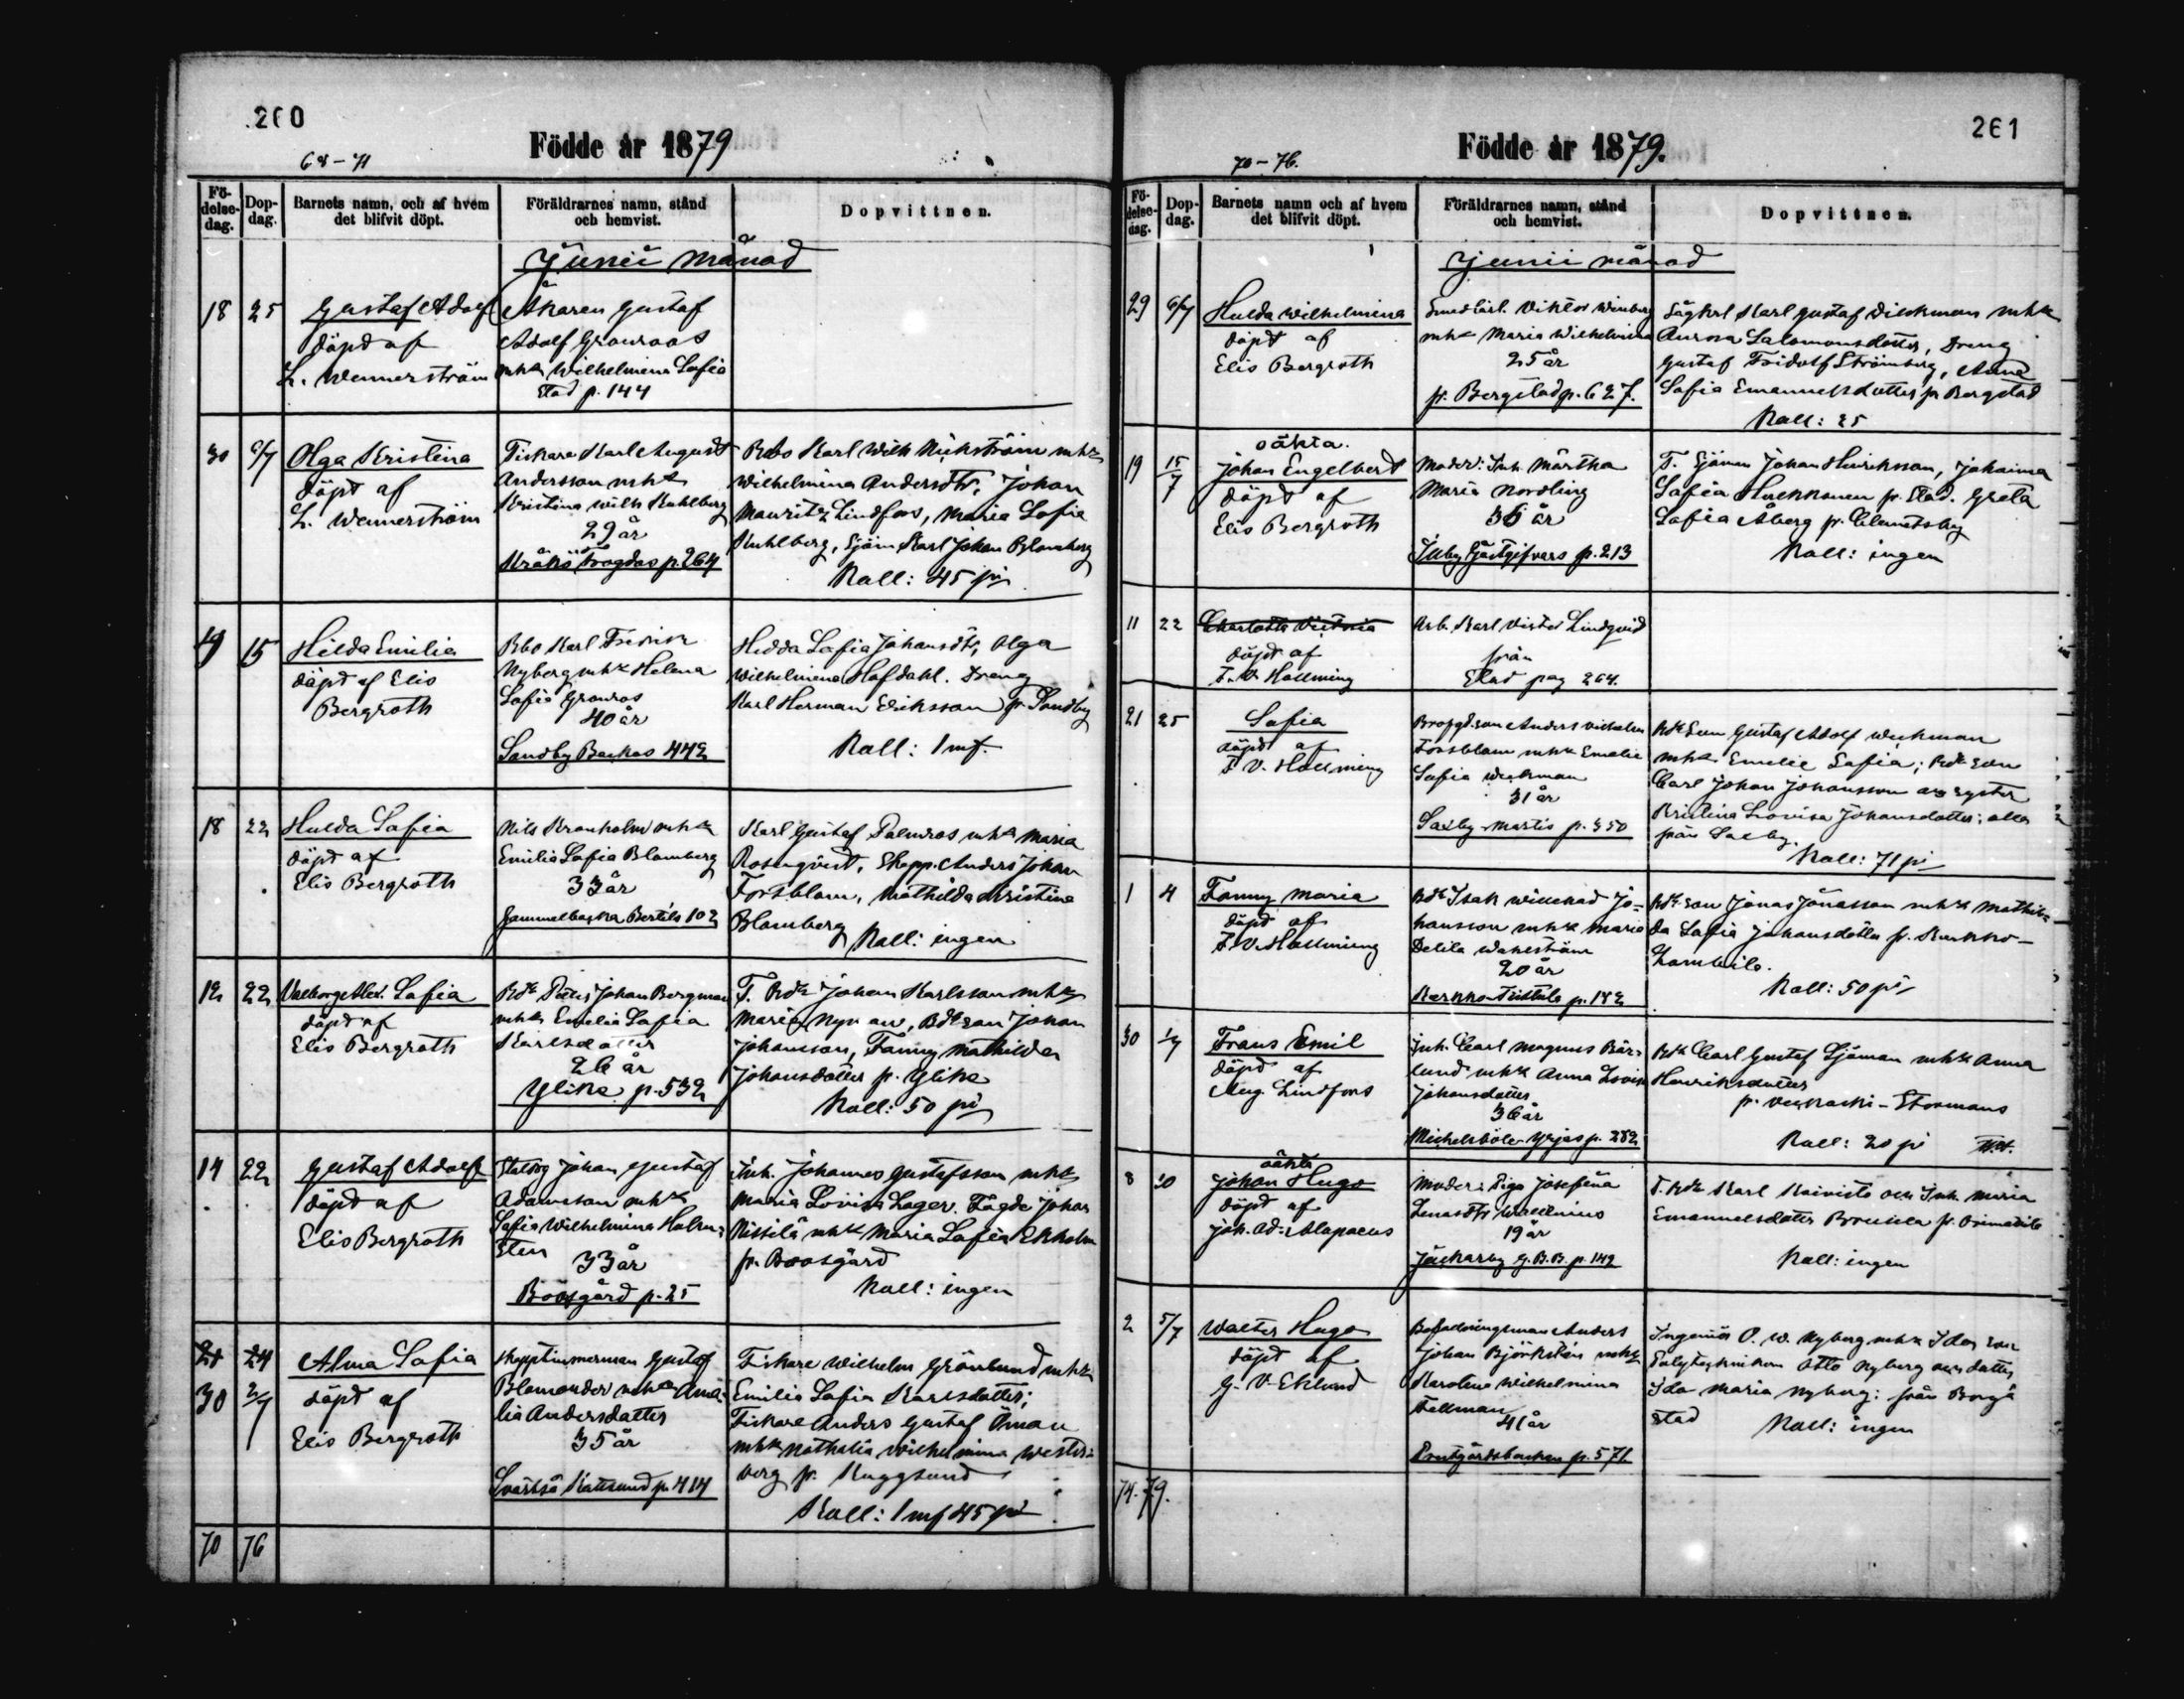 260
Födde år 1879
68-71
Födelsedag.
Dopdag.
Barnets namn, och af hvem det blifvit döpt.
Föräldrarnes namn, stånd och hemvist.
Dopvittnen.
Junii månad
18 25
Gustaf Adolf
döpt af
L. Wennerström
Åkaren Gustaf
Adolf Granroos
mhk Wilhelmina Sofia
Stad p. 144
30 6/7
Olga Kristina
döpt af
L. Wennerström
Fiskare Karl August
Andersson mhk
Kristina Wilh Kuhlberg
29 år
Kråkö Frogdas p. 264
Karl Wilh Nickström mhk
Wilhelmina Andersdtr, Johan
Mauritz Lindfors, Maria Sofia
Kuhlberg, Sjöm Karl Johan Blomberg
Koll: 45 pi
15
Hilda Emilia
döpt af Elis
Bergroth
Karl Fredrik
Nyberg mhk Helena
Sofia Granroos
40 år
Sandby Backas 442
Hedda Sofia Johansdtr, Olga
Wilhelmina Hofdahl. Dreng
Karl Herman Eriksson fr. Sandby
Koll: 1 mf.
18 22
Hulda Sofia
döpt af
Elis Bergroth
Nils Kronholm mhk
Emilia Sofia Blomberg
33 år
Gammelbacka Bertils 102
Karl Gustaf Palmroos mhk Maria
Rosenqvist, Skepp. Anders Johan
Forsblom, Mathilda Kristina
Blomberg
Koll: ingen
12 22
Valborg Alex. Sofia
döpt af
Elis Bergroth
Bdk Petter Johan Bergman
mhk Emilia Sofia
Karlsdotter
26 år
Ylike p. 532
F. Bdk Johan Karlsson mhk
Maria Nyman, Bdkson Johan
Johansson, Fanny Mathilda
Johansdotter fr. Ylike
Koll: 50 pi
14 22
Gustaf Adolf
döpt af
Elis Bergroth
Johan Gustaf
Adamsson mhk
Sofia Wilhelmina Holm-
sten
33 år
Boösgård p. 25
Inh. Johannes Gustafsson mhk
Maria Lovisa Lager. Fogde Johan
Nissilä mhk Maria Sofia Ekholm
fr. Boosgård
Koll: ingen
24
30 2/7
Alma Sofia
döpt af
Elis Bergroth
Skeppstimmerman Gustaf
Blomander mhk Ama-
lia Andersdotter
35 år
Svartsö Kattsund p. 414
Fiskare Wilhelm Grönlund mhk
Emilia Sofia Karlsdotter;
Fiskare Anders Gustaf Öman
mhk Nathalia Wilhelmina Wester-
berg fr. Kuggsund
Koll: 1 mf 45 pi
70 76
261
Födde år 1879.
70-76.
Födelsedag.
Dopdag.
Barnets namn och af hvem det blifvit döpt.
Föräldrarnes namn, stånd och hemvist.
Dopvittnen.
Junii månad
29 6/7
Hulda Wilhelmina
döpt af
Elis Bergroth
Viktor Winberg
mhk Maria Wilhelmina
25 år
fr. Bergstad p. 627.
Karl Gustaf Wickman mhk
Aurora Salomonsdotter, Dreng
Gustaf Fridolf Strömberg, Anna
Sofia Emanuelsdotter fr. Bergstad
Koll: 25
19 15/7
oäkta.
Johan Engelbert
döpt af
Elis Bergroth
Moder: Inh. Märtha
Maria Nordling
36 år
Illby Gästgifvars p. 213
F. Sjöman Johan Henriksson, Johanna
Sofia Huckkonen fr. Stad. Greta
Sofia Åberg fr. Clemetsby
Koll: ingen
11 22
Charlotta Victoria
döpt af
F. V. Hollming
Arb. Karl Victor Lindqvist
från
Stad pag 264.
21 25
Sofia
döpt af
F. V. Hollming
Anders Vilhelm
Forsblom mhk Emelie
Sofia Weckman
31 år
Saxby Martis p. 350
Bdkson Gustaf Adolf Weckman
mhk Emelie Sofia; Bdkson
Carl Johan Johansson och syster
Kristina Lovisa Johansdotter; alla
från Saxby.
Koll: 71 pi
1 4
Fanny Maria
döpt af
F. V. Hollming
Bdk Isak Willehad Jo-
hansson mhk Maria
Delila Wakeström
20 år
p. 182
Bdk son Jonas Jonasson mhk Mathil-
da Sofia Johansdotter fr.
Koll: 50 pi
30 1/7
Frans Emil
döpt af
Aug. Lindfors
Inh. Carl Magnus Bär-
lund mhk Anna Lovisa
Johansdotter
36 år
Michelsböle Yrjas p. 282
Bdk Carl Gustaf Sjöman mhk Anna
Henriksdotter
fr. Veckoski-Stormans
Koll: 20 pi
8 30
oäkta
Johan Hugo
döpt af
Joh. Ad. Alopaeus
Moder: Piga Josefina
Lenasdtr Wallenius
19 år
Jackarby G.B.B. p. 149
F. Bdk Karl Koivisto och Inh. Maria
Emanuelsdotter
Koll: ingen
2 5/7
Walter Hugo
döpt af
G. V. Eklund
Befallningsman Anders
Johan Björkstén mhk
Karolina Wilhelmina
Fellman
41 år
p. 571
Ingeniör O. W. Nyberg mhk Ida; son
Polyteknikern Otto Nyberg och dotter
Ida Maria Nyberg: från Borgå
stad
Koll: ingen
74. 79.